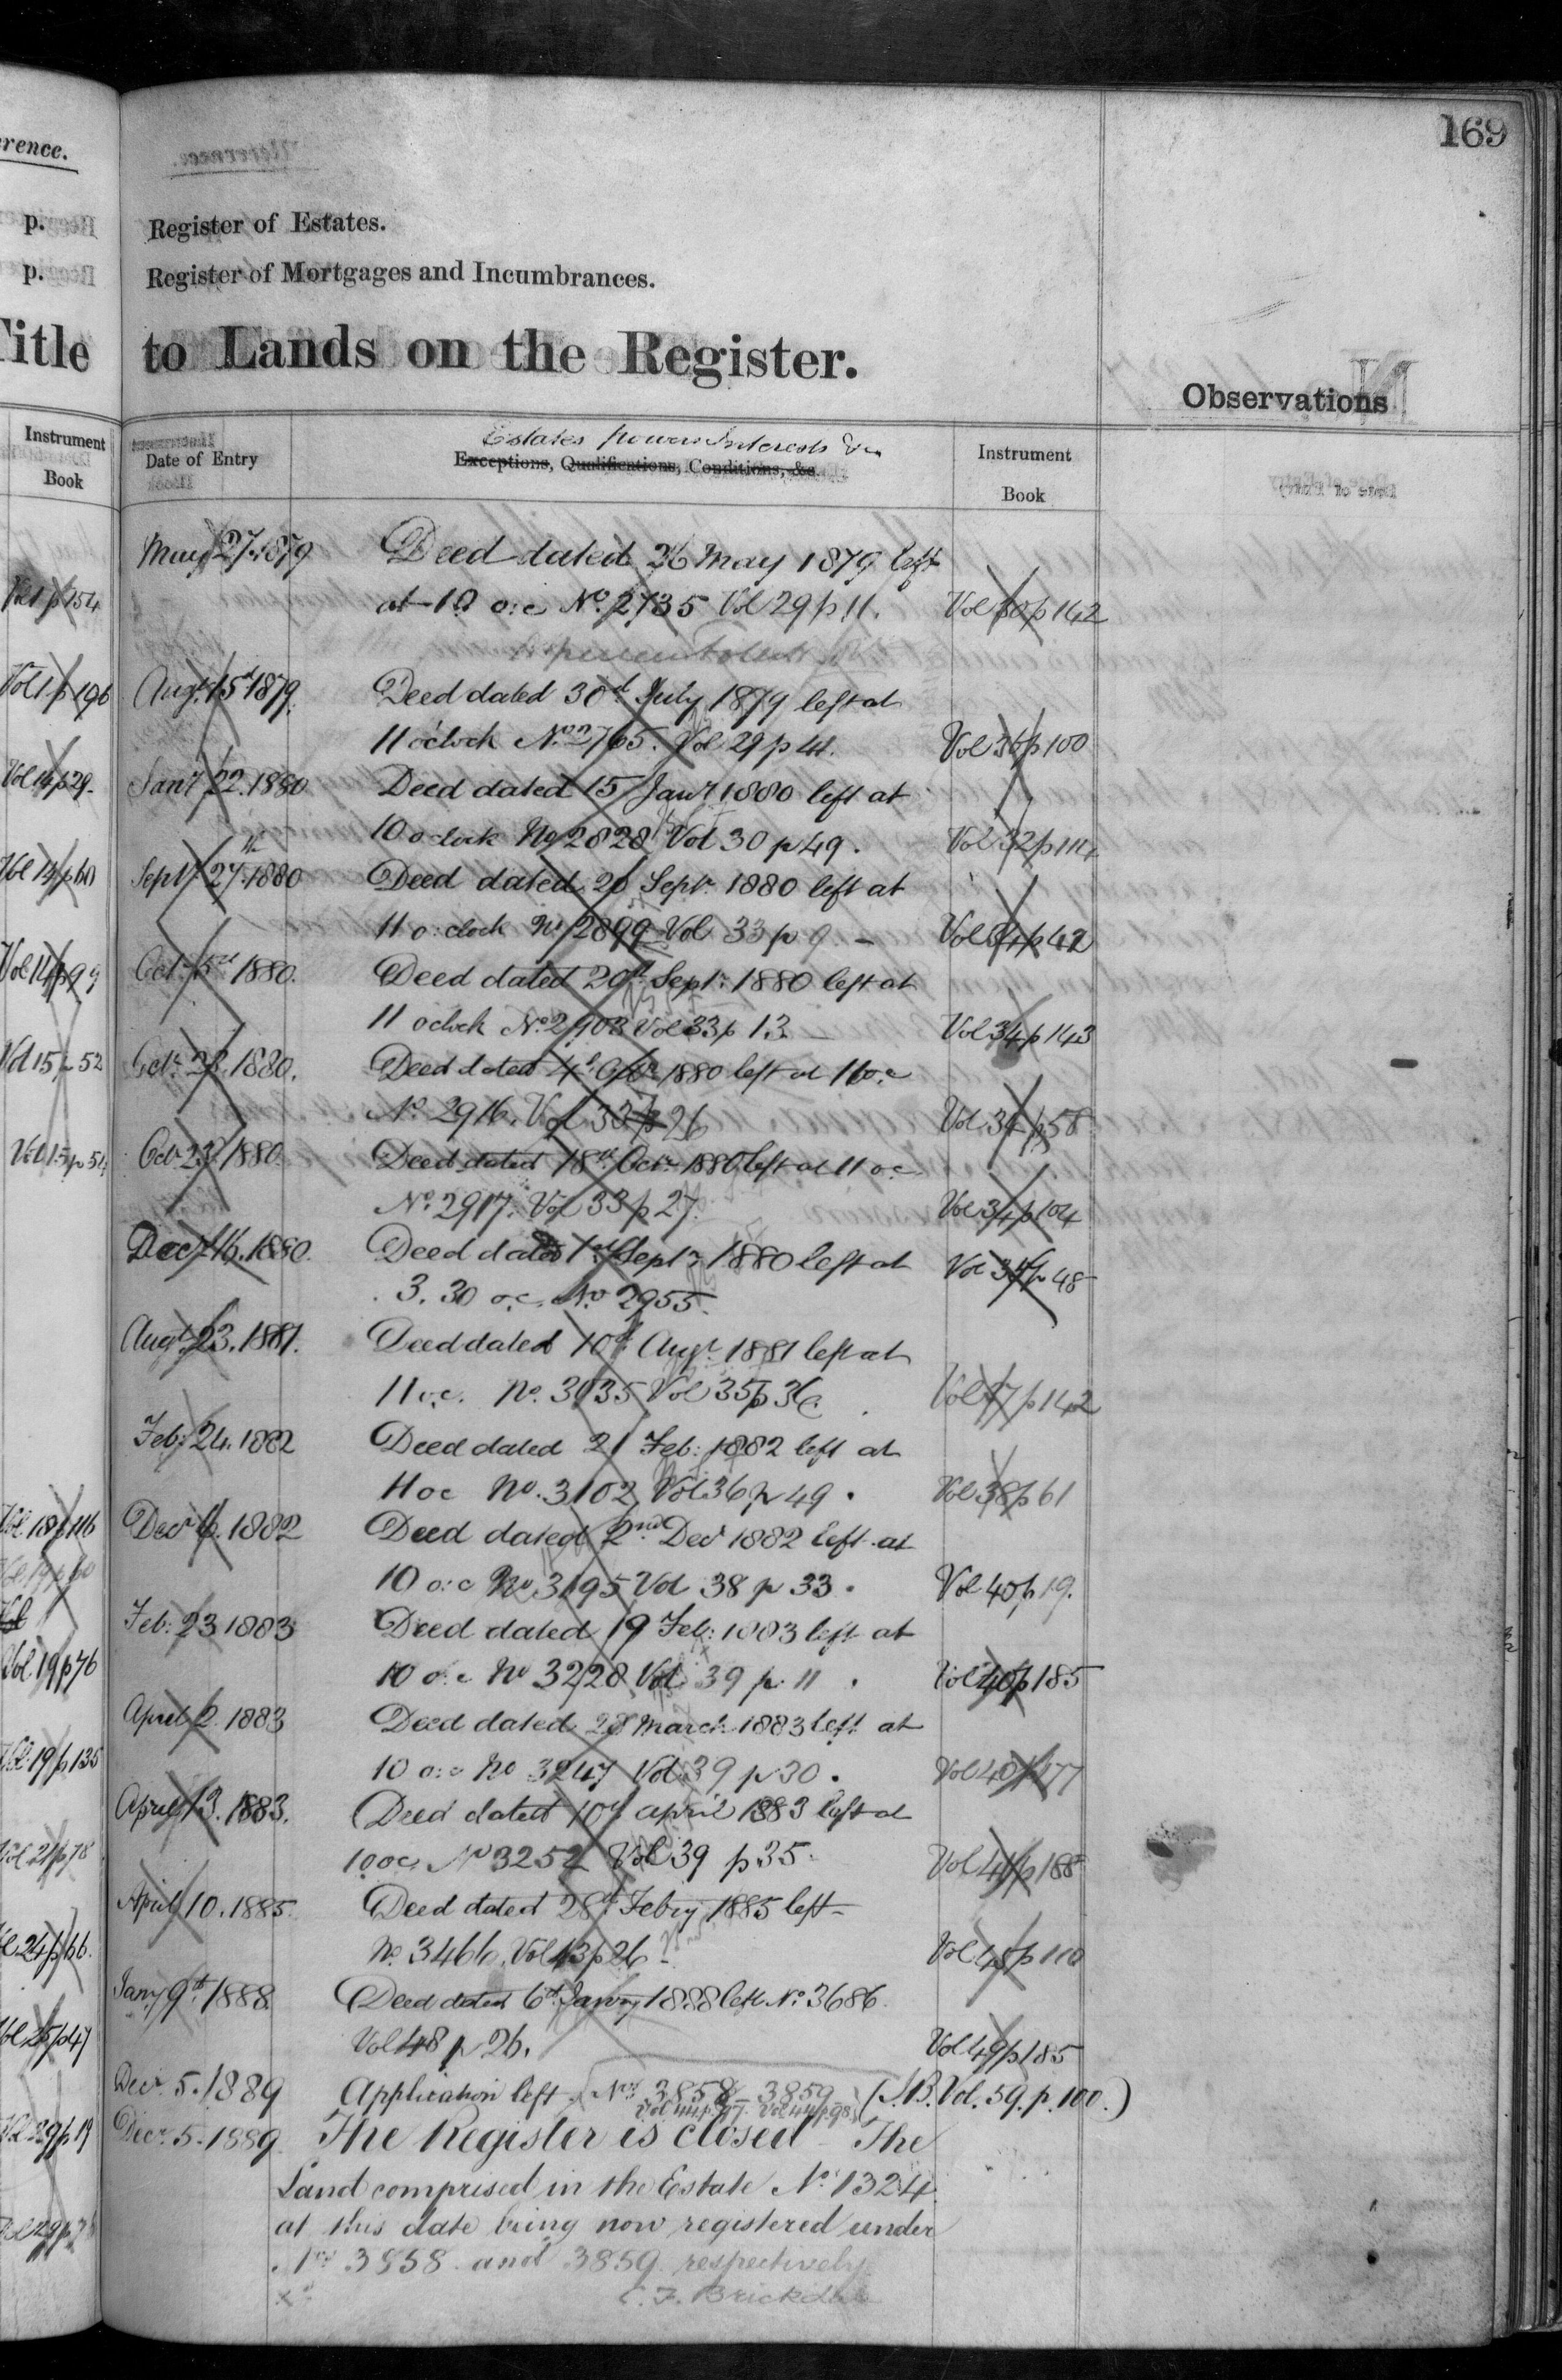 169
rence.
p.
Register of Estates.
p.
Register of Mortgages and Incumbrances.
Title
to Lands on the Register.
Observations
Instrument
Book
Date of Entry
Estates powers Interests &c
Exceptions, Qualifications, Conditions, &c.
Instrument
Book
May 27. 1879
Deed dated 26 May 1879 left
at 10 o:c No. 2735 Vol 29 p 11.
Vol 30 p 142
Vol 1 p 154
Vol 1 p 196
Augt. 15th 1879.
Deed dated 30th July 1879 left at
11 o'clock No. 2765. Vol 29 p 41.
Vol 36 p 100
Vol 14 p 29.
Jany 22. 1880
Deed dated 15 Jany 1880 left at
10 o'clock No 2828 Vol 30 p 49.
Vol 32 p 114
Vol 14 p 60
Septr 27th. 1880
Deed dated 20 Septr. 1880 left at
11 o:clock No 2899 Vol 33 p 9 -
Vol 34 p 42
Vol 14 p 99
Octr 5th 1880.
Deed dated 20th Septr. 1880 left at
11 oclock No. 2903 Vol 33 p 13
Vol 34 p 143
Vol 15 p 52
Octr. 23. 1880.
Deed dated 4th Octr 1880 left at 11 o.c
No. 2916. Vol 33 p 26
Vol 34 p 58
Vol. 15 p 54
Octr 23 1880.
Deed dated 18th Octr 1880 left at 11 o.c
No. 2917. Vol 33 p 27.
Vol 34 p 104
Decr 16. 1880.
Deed dated 1st Septr 1880 left at
3. 30 o.c. No 2955.
Vol 34 p 48
Augt. 23. 1881.
Deed dated 10th Augt. 1881 left at
11 o.c. No. 3035 Vol 35 p 36
Vol 37 p 142
Feb: 24. 1882
Deed dated 21 Feb: 1882 left at
11 oc No. 3102 Vol 36 p 49.
Vol 38 p 61
Vol 18 p 116
Vol 19 p 60
Vol
Decr 6. 1882
Deed dated 2nd Decr 1882 left at
10 o:c No 3195 Vol 38 p 33.
Vol 40 p 19.
Vol. 19 p 76
Feb: 23 1883
Deed dated 19 Feb: 1883 left at
10 o:c No 3228 Vol 39 p. 11.
Vol 40 p 185
Vol. 19 p 135
April 2. 1883
Deed dated 28 March 1883 left at
10 o:c No 3247 Vol 39 p 30.
Vol 40 p 177
April 13. 1883.
Deed dated 10th April 1883 left at
10 oc. No 3252 Vol 39 p 35.
Vol 41 p 188
Vol 21 p 78
April 10. 1885.
Deed dated 28th Febry 1885 left
No. 3466. Vol 43 p 26
Vol 45 p 110
Jany 9th. 1888
Deed dated 6th Janry 1888 left No. 3686.
Vol 48 p 26.
Vol 49 p 185
Decr. 5. 1889
Application left Nos 3858 - 3859 (I.B. Vol. 59. p. 100.)
Vol 44 p. 97. Vol 44 p 98.
Decr. 5. 1889.
The Register is closed - The
Land comprised in the Estate No. 1324
at this date being now registered under
Nos 3858 and 3859 respectively
C. F. Brickdale